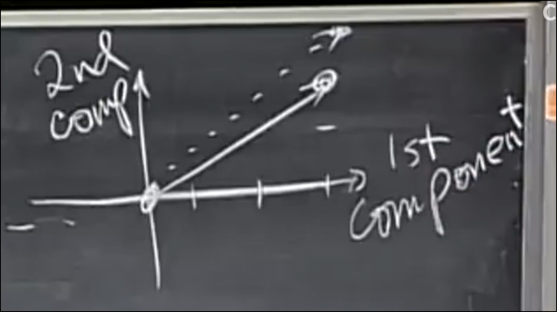 2nd
comp
1st
component